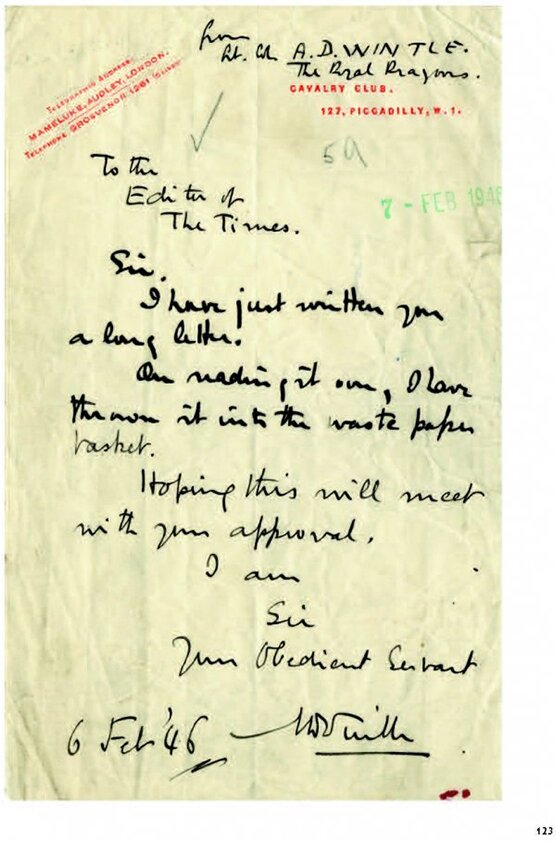 from
Lt. Col A.D. WINTLE.
The Royal Dragoons.
CAVALRY CLUB.
127, PICCADILLY, W.1.
TELEGRAPHIC ADDRESS:
MAMELUKE, AUDLEY, LONDON.
TELEPHONE GROSVENOR 1261
59
To the
Editor of
The Times.
7 - FEB 1946
Sir,
I have just written you
a long letter.
On reading it over, I have
thrown it into the waste paper
basket.
Hoping this will meet
with your approval,
I am
Sir
Your Obedient Servant
6 Feb '46
ADWintle
123